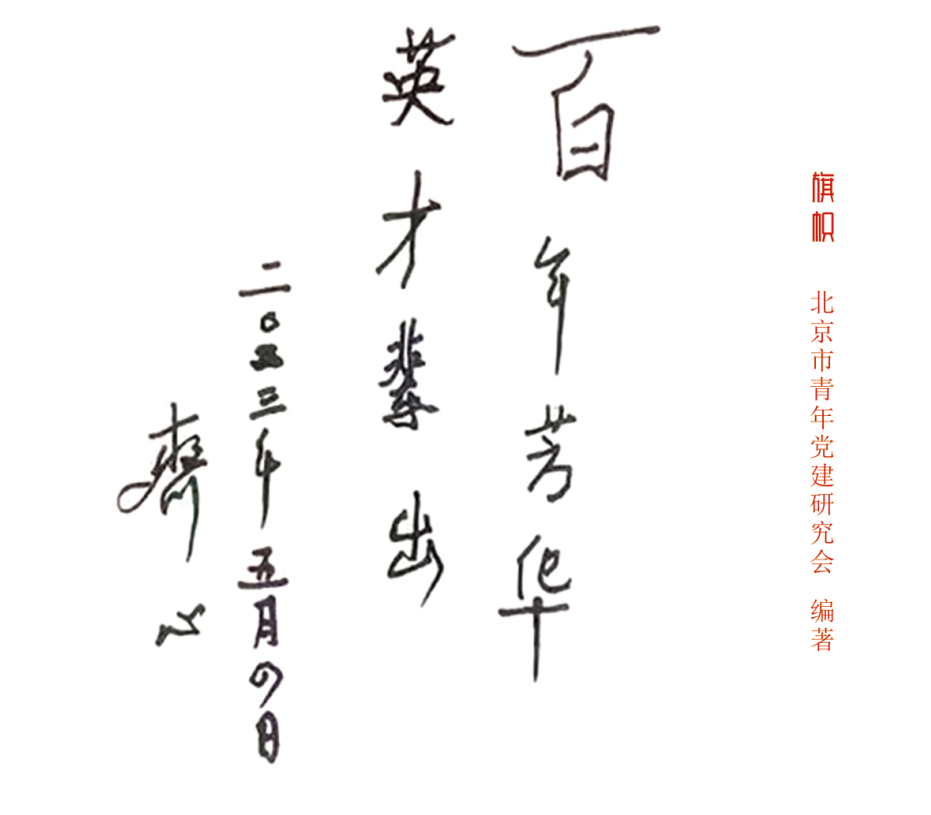 百年芳华
英才辈出
二〇二三年五月四日
齊心
旗帜
北京市青年党建研究会 编著